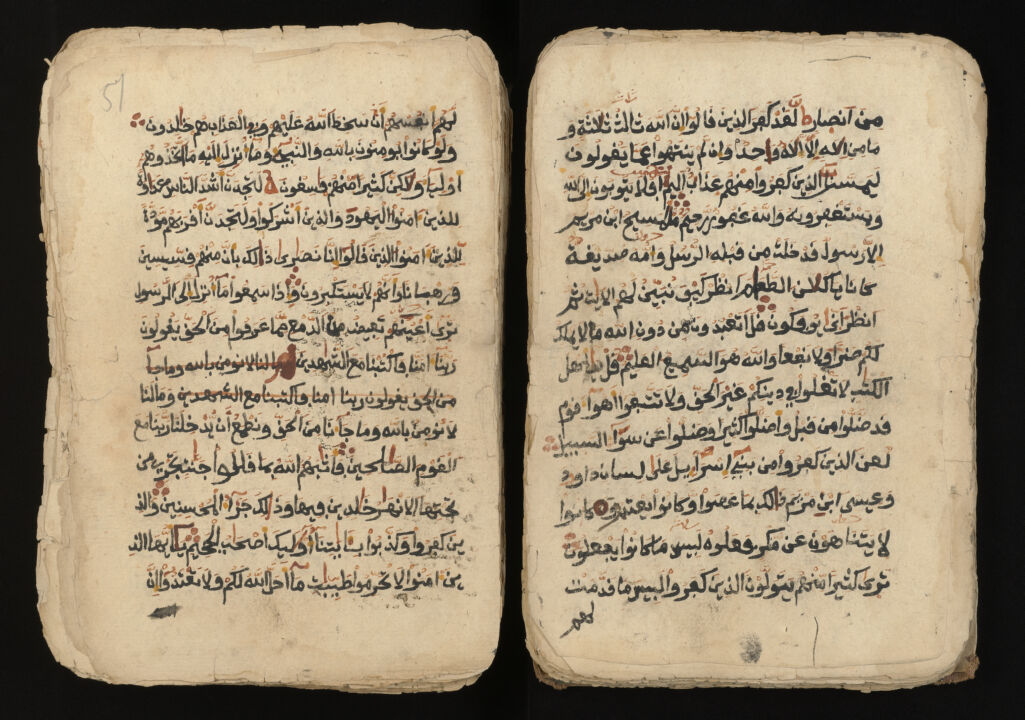 من انصار لقد كفر الذين قالوا ان الله ثالث ثلاثة و
ما من اله الا اله واحد وان لم ينتهوا عما يقولون
ليمسن الذين كفروا منهم عذاب اليم افلا يتوبون الى الله
ويستغفرونه والله غفور رحيم ما المسيح ابن مريم
الا رسول قد خلت من قبله الرسل وامه صديقة
كانا ياكلان الطعام انظر كيف نبين لهم الايت ثم
انظر انى يوفكون قل اتعبدون من دون الله ما لا يملك
لكم ضرا ولا نفعا والله هو السميع العليم قل ياهل
الكتب لا تغلوا في دينكم غير الحق ولا تتبعوا اهوا قوم
قد ضلوا من قبل واضلوا كثيرا وضلوا عن سوا السبيل
لعن الذين كفروا من بني اسرايل على لسان داود
وعيسى ابن مريم ذلك بما عصوا وكانوا يعتدون كانوا
لا يتناهون عن منكر فعلوه لبيس ما كانوا يفعلون
ترى كثيرا منهم يتولون الذين كفروا لبيس ما قدمت
لهم
51
لهم انفسهم ان سخط الله عليهم وفي العذاب هم خلدون
ولو كانوا يومنون بالله والنبي وما انزل اليه ما اتخذوهم
اوليا ولكن كثيرا منهم فسقون لتجدن اشد الناس عداوة
للذين امنوا اليهود والذين اشركوا ولتجدن اقربهم مودة
للذين امنوا الذين قالوا انا نصارى ذلك بان منهم قسيسين
ورهبانا وانهم لا يستكبرون واذا سمعوا ما انزل الى الرسول
ترى اعينهم تفيض من الدمع مما عرفوا من الحق يقولون
ربنا امنا فاكتبنا مع الشهدين وما لنا لا نومن بالله وما جانا
من الحق يقولون ربنا امنا فاكتبنا مع الشهدين وما لنا
لا نومن بالله وما جانا من الحق ونطمع ان يدخلنا ربنا مع
القوم الصالحين فاثبهم الله بما قالوا جنت تجري من
تحتها الانهر خلدين فيها وذلك جزا المحسنين والذ
ين كفروا وكذبوا بايتنا اوليك اصحب الجحيم يايها الذ
ين امنوا لا تحرموا طيبت ما احل الله لكم ولا تعتدوا ان